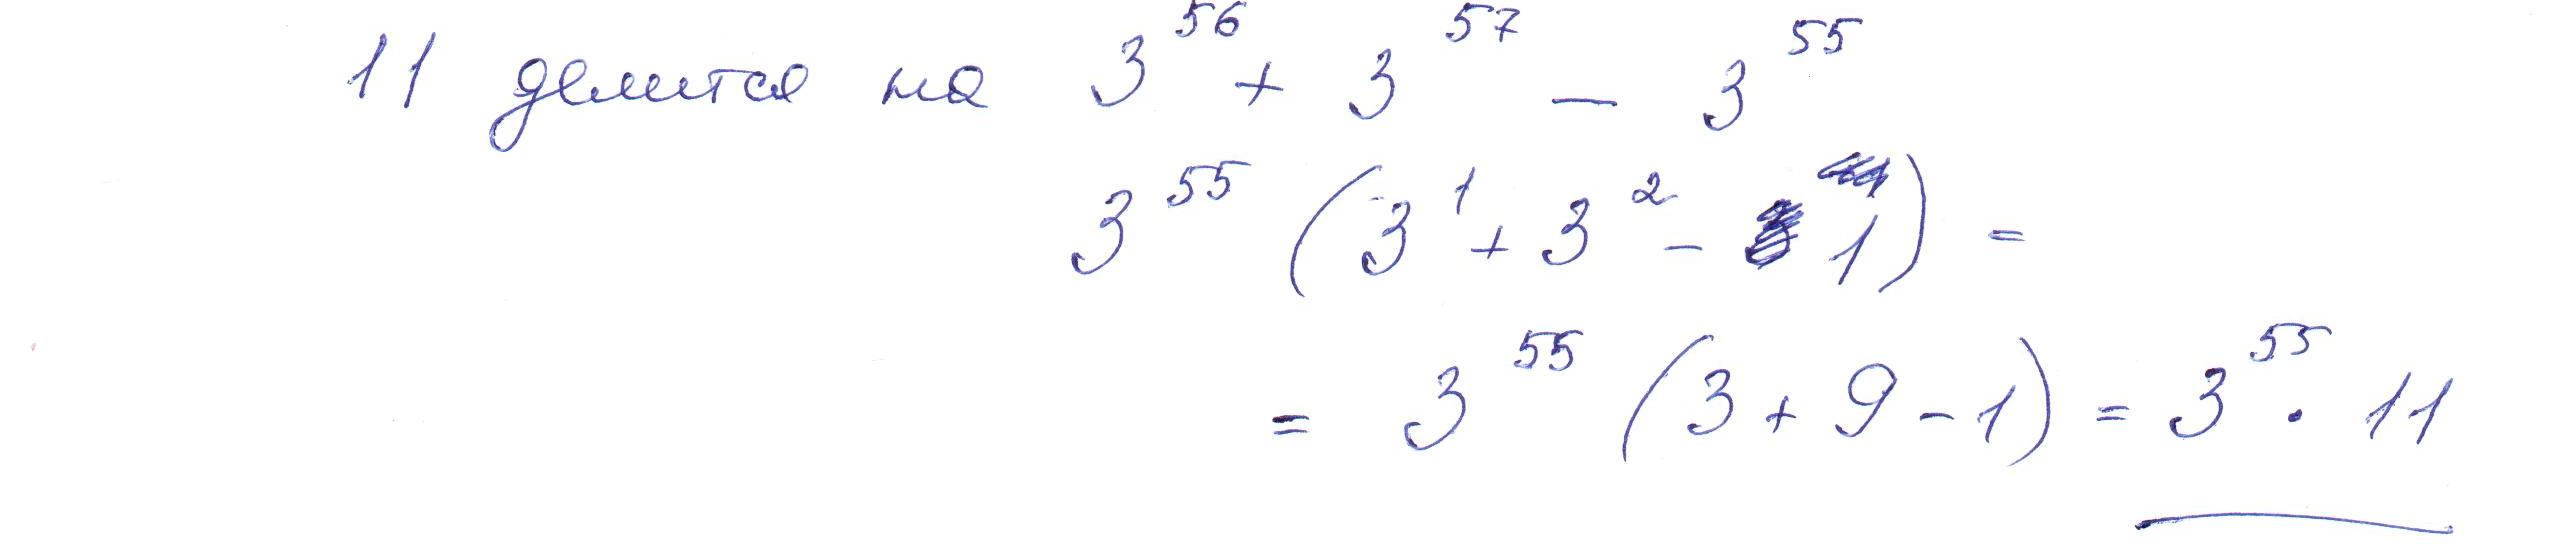 11 делится на 3^56 + 3^57 - 3^55
3^55 (3^1 + 3^2 - 1) =
= 3^55 (3 + 9 - 1) = 3^55 · 11